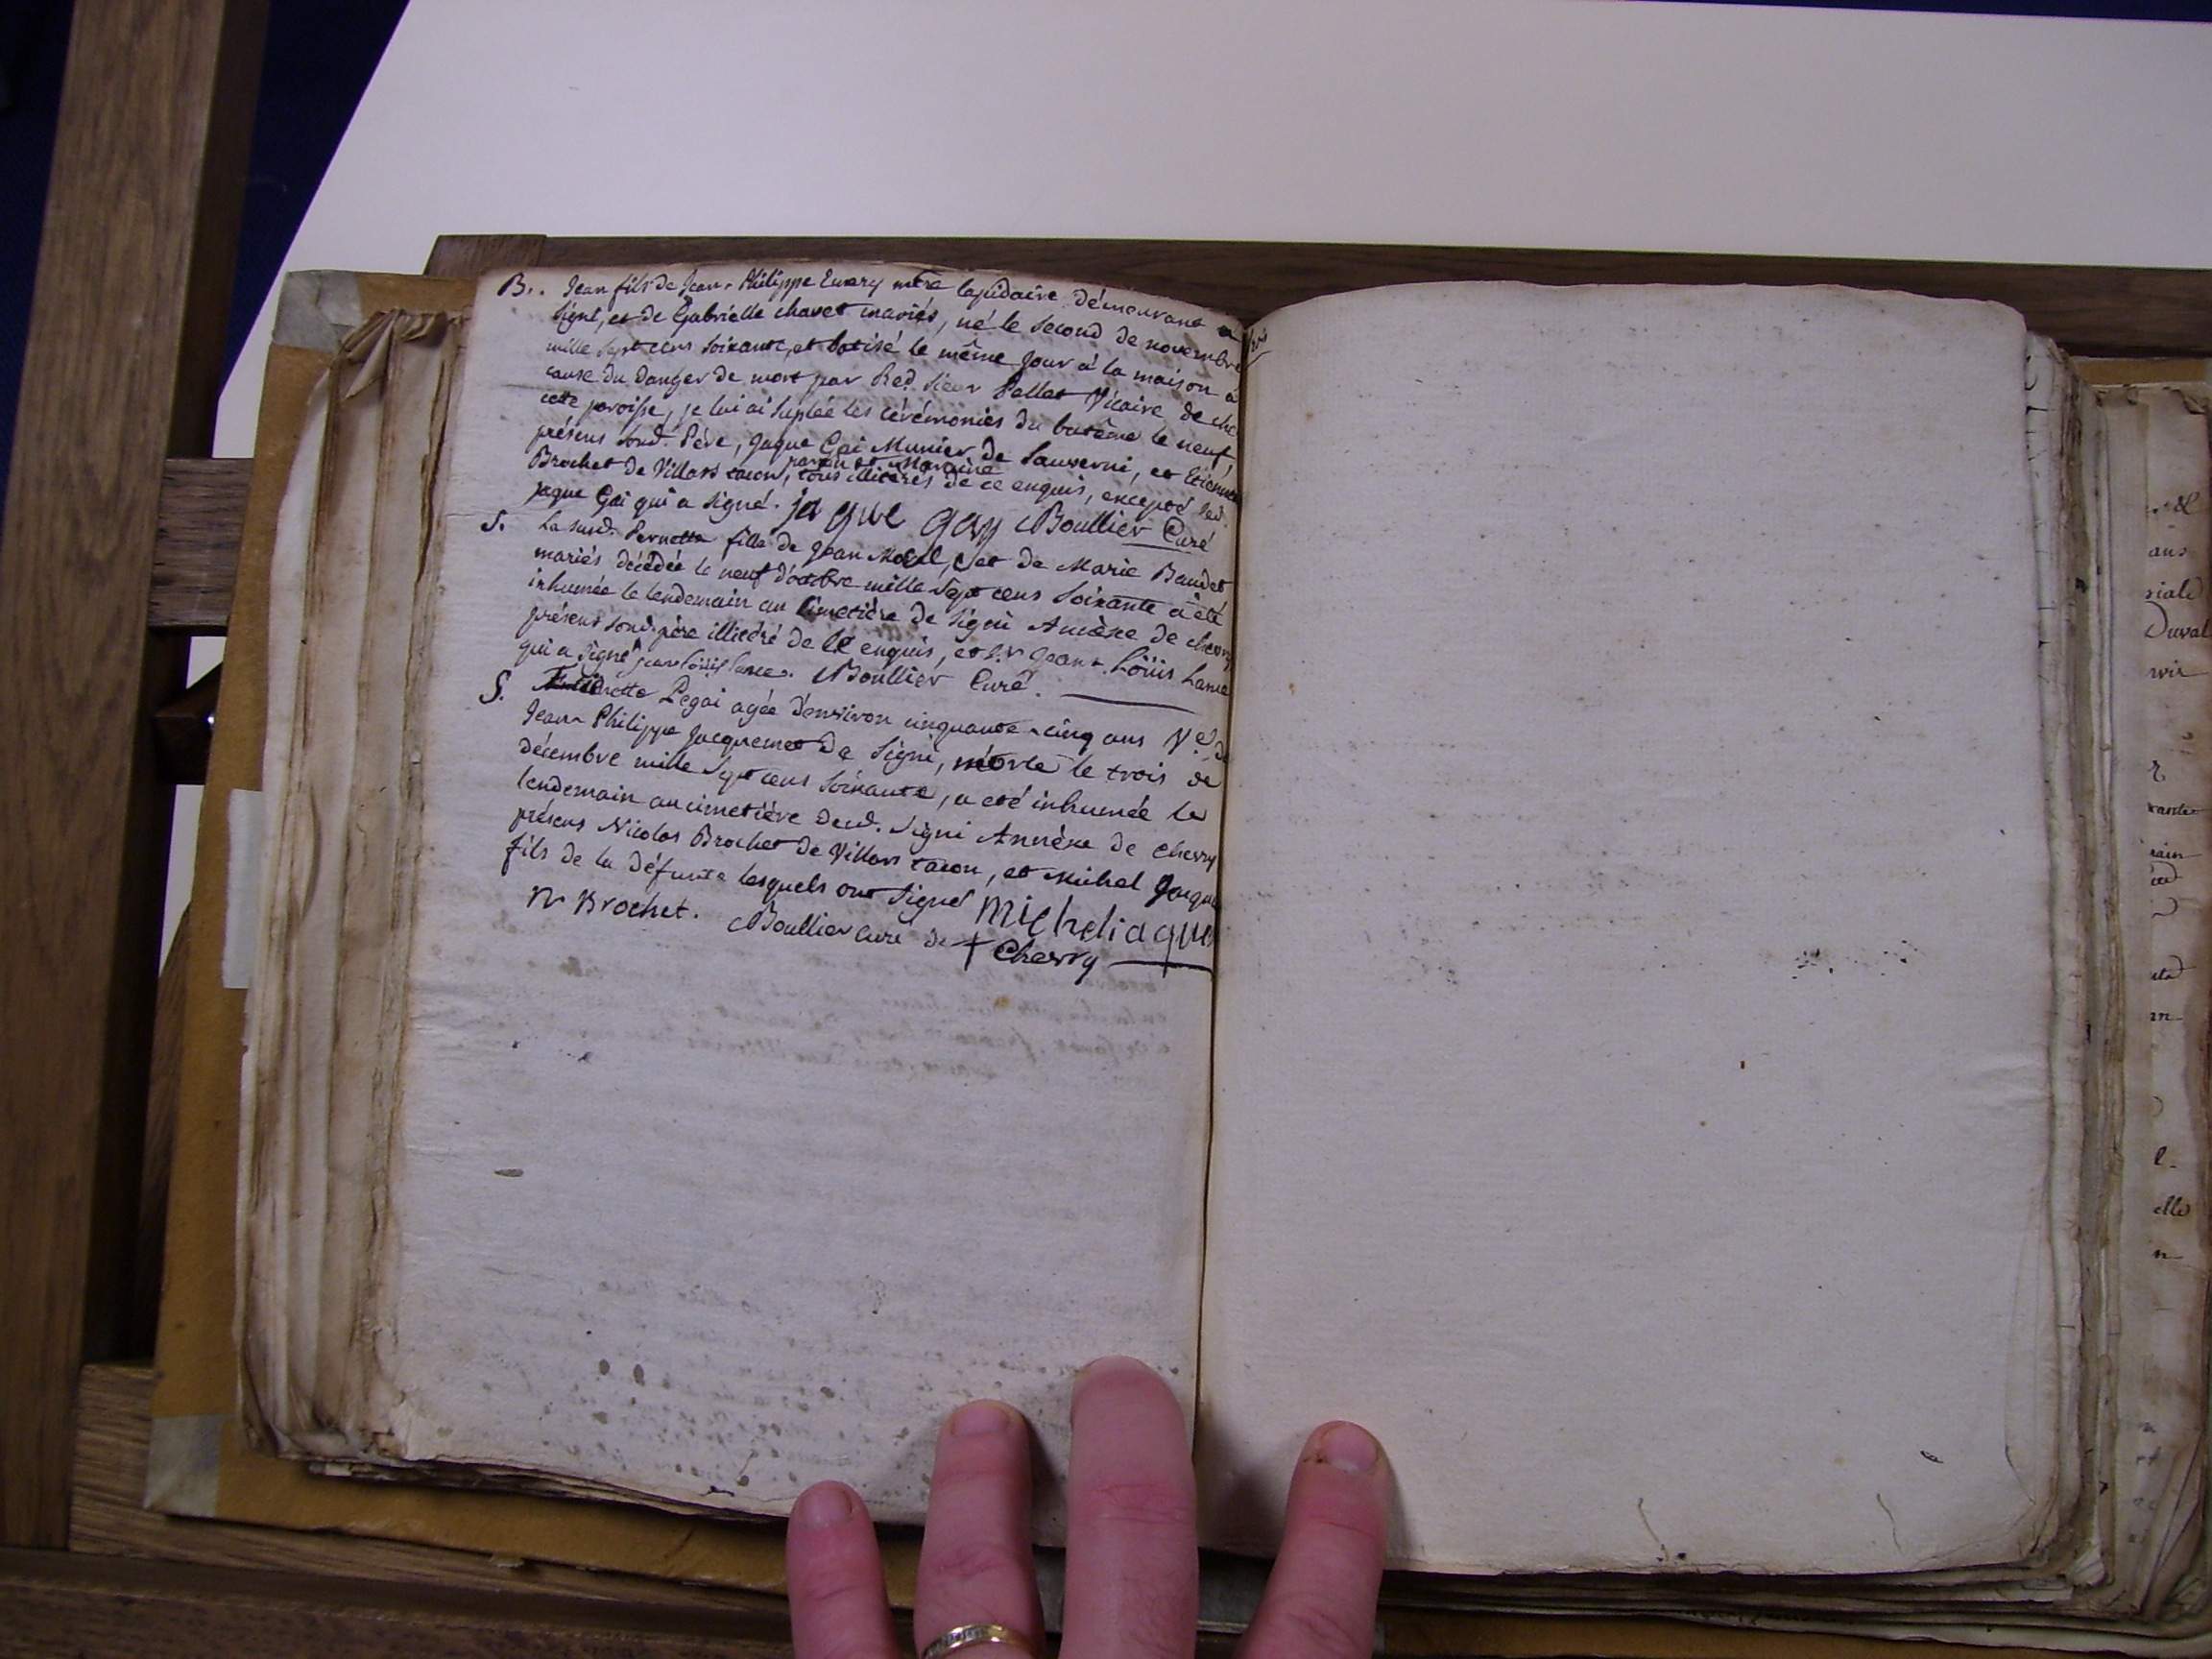 B. Jean fils de Jean-Philippe Emery mtre lapidaire demeurant a
Signi, et de Gabrielle chavet mariés, né le second de novembre
mille sept cens soixante, et batisé le même jour à la maison à
cause du danger de mort par Red. sieur Pellet Vicaire de che
cette paroisse, je lui ai suplée les cérémonies du batême le neuf
présens sond. Pére, Jaque Gai Munier de Sauverni, et Etienne
Brochet de Villars tacon, parain et Maraine tous illiterés de ce enquis, excepté led.
jaque Gai qui a signé. jaque gay Boullier Curé
S. La susd. Pernette fille de Jean et de Marie Baudet
mariés décédée le neuf d'octobre mille sept cens soixante a été
inhumée le lendemain au cimetière de Signi Annèxe de chevry
présens sond. pére illiteré de ce enquis, et Sr. Jean-Loüis Lance
qui a signé jean loüis lance. Boullier Curé.
S. Pegai agée d'environ cinquante-cinq ans Ve. de
Jean-Philippe Jacquemet de Signi, morte le trois de
décembre mille sept cens soixante, a eté inhumée le
lendemain au cimetiére dud. Signi Annèxe de chevry
présens Nicolas Brochet de Villars tacon, et Michel Jaque
fils de la défunte lesquels ont signé michel iaque
N Brochet. Boullier curé de Chevry